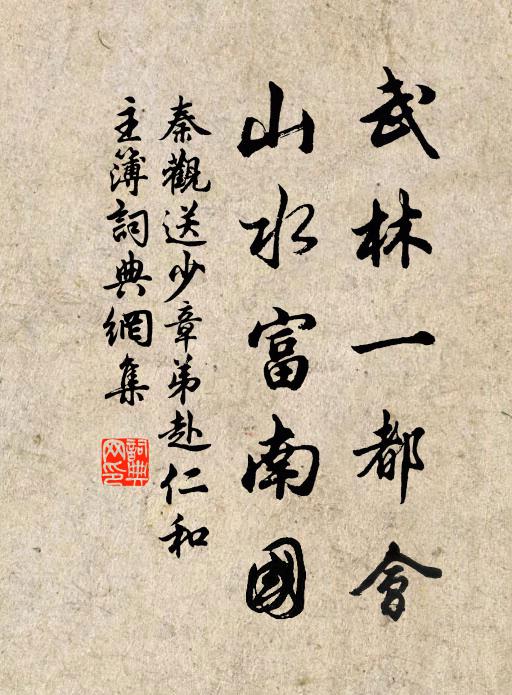 武林一都會
山水富南國
秦觀送少章弟赴仁和
主簿詞典網集
詞典
网印